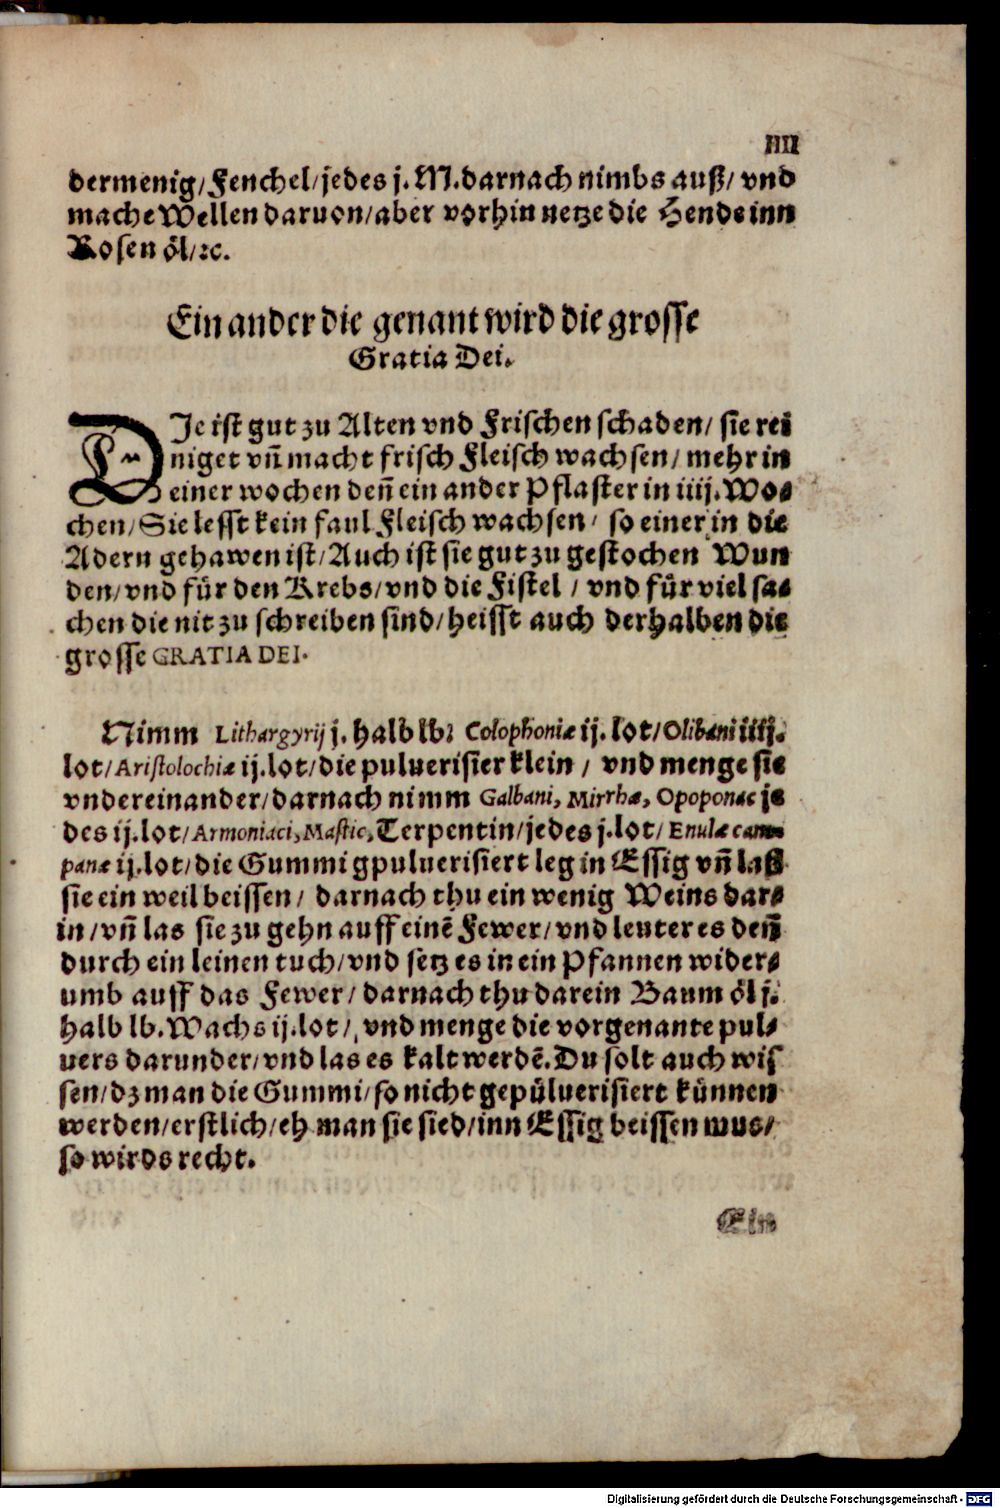 IIII
dermenig/Fenchel/jedes j. M. darnach nimbs auß/ vnd
mache Wellen daruon/aber vorhin netze die Hende inn
Rosen öl/ꝛc.
Ein ander die genant wird die grosse
Gratia Dei.
DIe ist gut zu Alten vnd Frischen schaden/ sie rei
niget vñ macht frisch Fleisch wachsen/ mehr in
einer wochen deñ ein ander Pflaster in iiij. Wo⸗
chen/ Sie lesst kein faul Fleisch wachsen/ so einer in die
Adern gehawen ist/ Auch ist sie gut zu gestochen Wun
den/ vnd für den Krebs/ vnd die Fistel / vnd für viel sa⸗
chen die nit zu schreiben sind/ heisst auch derhalben die
grosse GRATIA DEI.
Nimm Lithargyrij j. halb lb: Colophoniæ ij. lot/ Olibani iiij.
lot/ Aristolochiæ ij. lot/ die puluerisier klein / vnd menge sie
vndereinander/ darnach nimm Galbani, Mirrhæ, Opoponac je
des ij. lot/ Armoniaci, Mastic, Terpentin/ jedes j. lot/ Enulæ cam
panæ ij. lot/ die Gummi gpuluerisiert leg in Essig vñ laß
sie ein weil beissen/ darnach thu ein wenig Weins dar⸗
in/ vñ las sie zu gehn auff einẽ Fewer/ vnd leuter es deñ
durch ein leinen tuch/ vnd setz es in ein Pfannen wider⸗
umb auff das Fewer/ darnach thu darein Baum öl j.
halb lb. Wachs ij. lot/ vnd menge die vorgenante pul⸗
uers darunder/ vnd las es kalt werdẽ. Du solt auch wis
sen/ dz man die Gummi/ so nicht gepülluerisiert künnen
werden/ erstlich/ eh man sie sied/ inn Essig beissen mus/
so wirds recht.
Ein
Digitalisierung gefördert durch die Deutsche Forschungsgemeinschaft - DFG